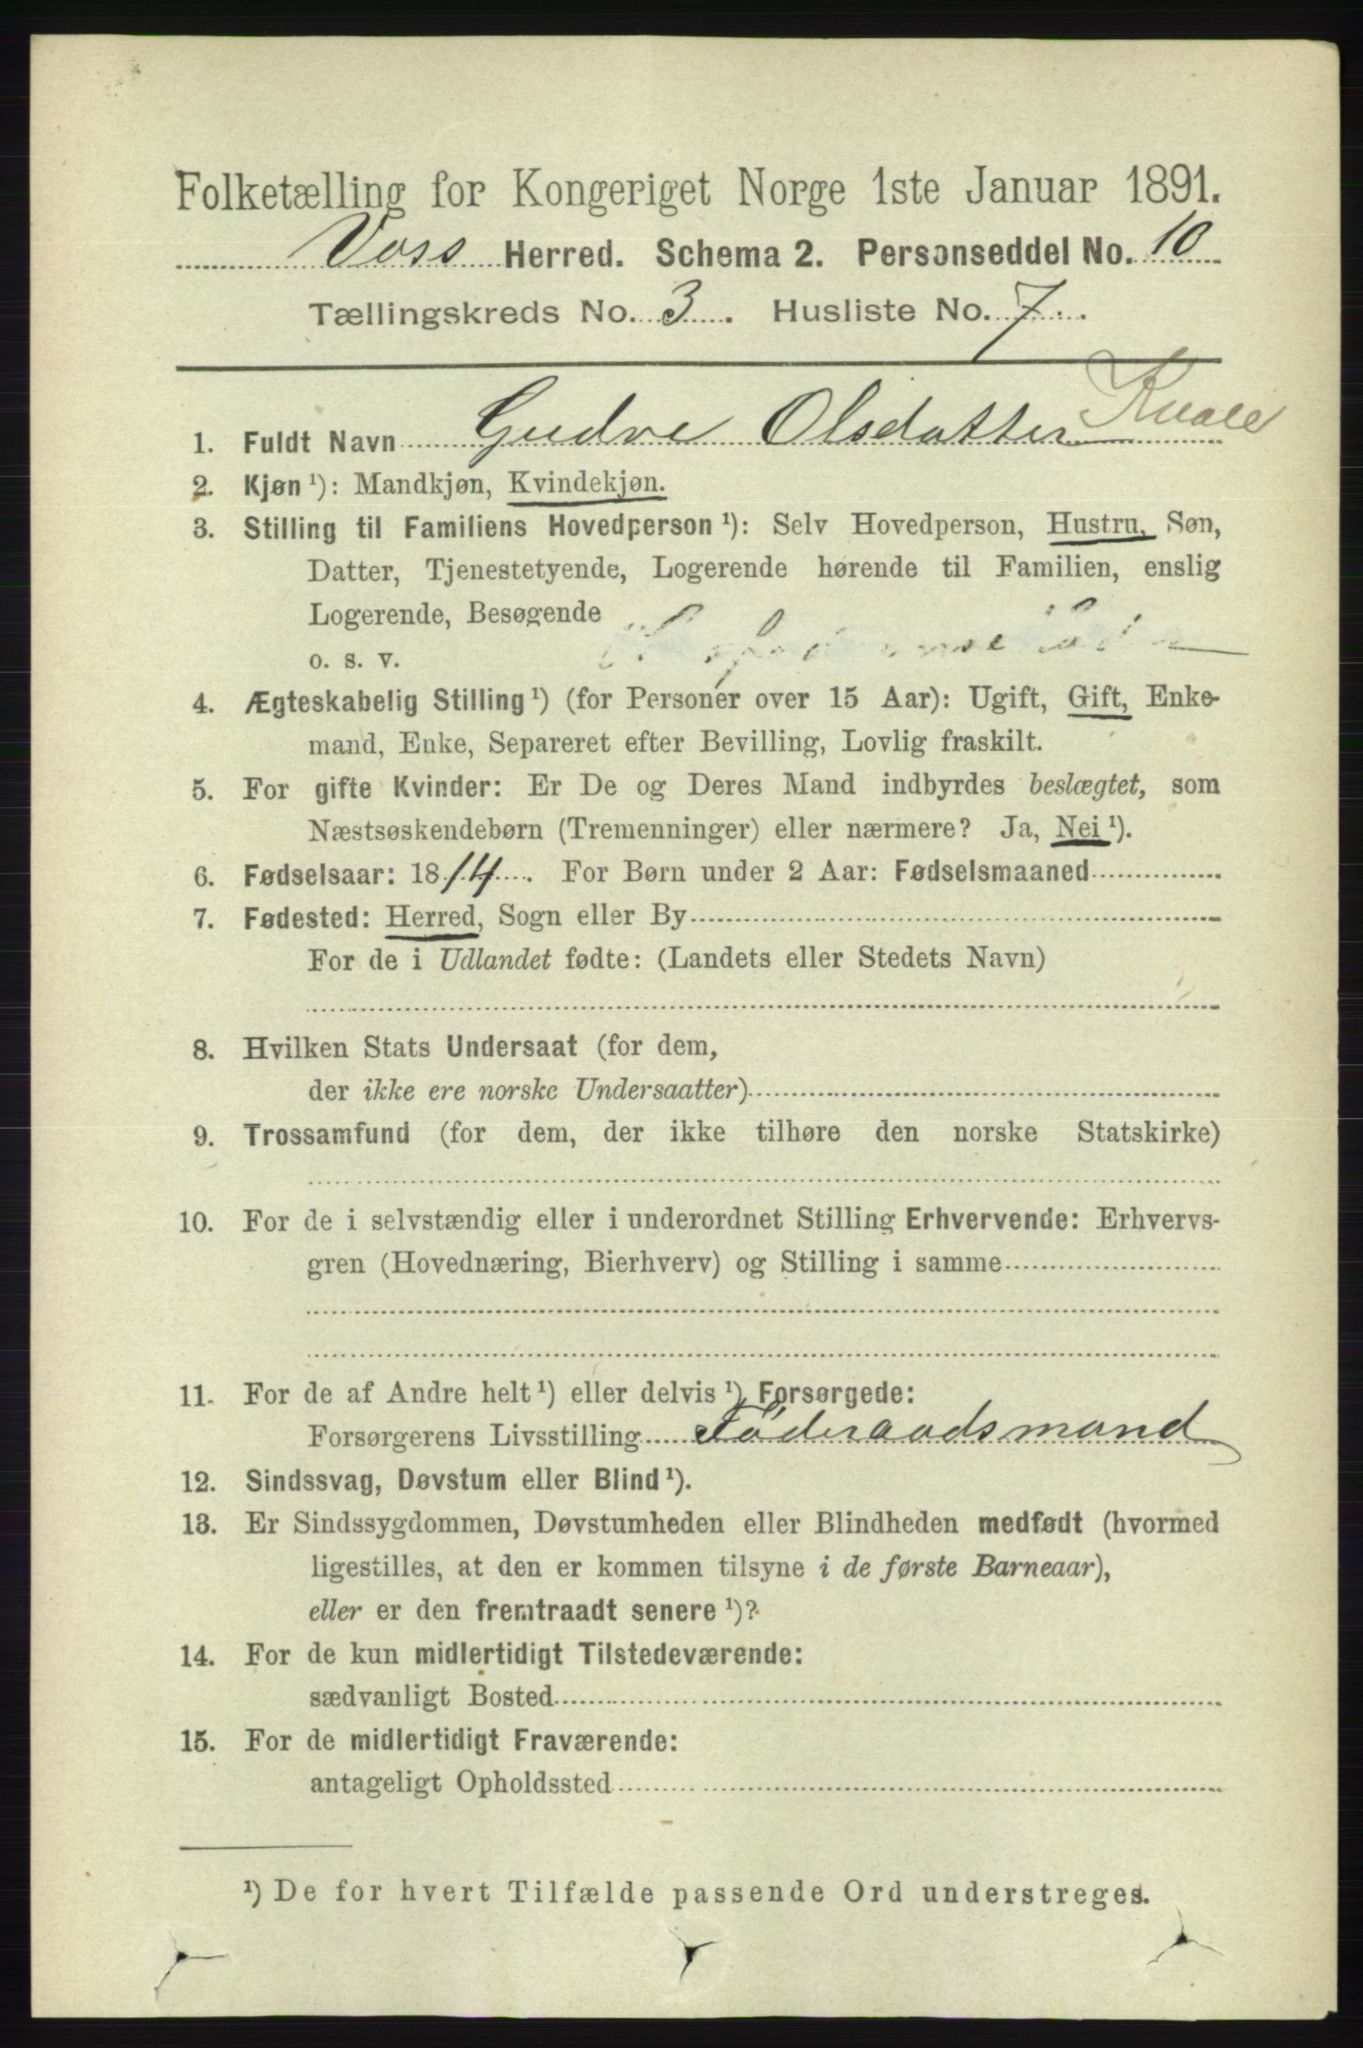 Folketælling for Kongeriget Norge 1ste Januar 1891.
Voss Herred. Schema 2. Personseddel No. 10
Tællingskreds No. 3. Husliste No. 7.
1. Fuldt Navn Gudve Olsdatter Kvale
2. Kjøn ¹): Mandkjøn, Kvindekjøn.
3. Stilling til Familiens Hovedperson ¹): Selv Hovedperson, Hustru, Søn,
Datter, Tjenestetyende, Logerende hørende til Familien, enslig
Logerende, Besøgende
o. s. v.
4. Ægteskabelig Stilling ¹) (for Personer over 15 Aar): Ugift, Gift, Enke-
mand, Enke, Separeret efter Bevilling, Lovlig fraskilt.
5. For gifte Kvinder: Er De og Deres Mand indbyrdes beslægtet, som
Næstsøskendebørn (Tremenninger) eller nærmere? Ja, Nei ¹).
6. Fødselsaar: 1814. For Børn under 2 Aar: Fødselsmaaned
7. Fødested: Herred, Sogn eller By
For de i Udlandet fødte: (Landets eller Stedets Navn)
8. Hvilken Stats Undersaat (for dem,
der ikke ere norske Undersaatter)
9. Trossamfund (for dem, der ikke tilhøre den norske Statskirke)
10. For de i selvstændig eller i underordnet Stilling Erhvervende: Erhvervs-
gren (Hovednæring, Bierhverv) og Stilling i samme
11. For de af Andre helt ¹) eller delvis ¹) Forsørgede:
Forsørgerens Livsstilling Föderaadsmand
12. Sindssvag, Døvstum eller Blind ¹).
13. Er Sindssygdommen, Døvstumheden eller Blindheden medfødt (hvormed
ligestilles, at den er kommen tilsyne i de første Barneaar),
eller er den fremtraadt senere ¹)?
14. For de kun midlertidigt Tilstedeværende:
sædvanligt Bosted
15. For de midlertidigt Fraværende:
antageligt Opholdssted
¹) De for hvert Tilfælde passende Ord understreges.